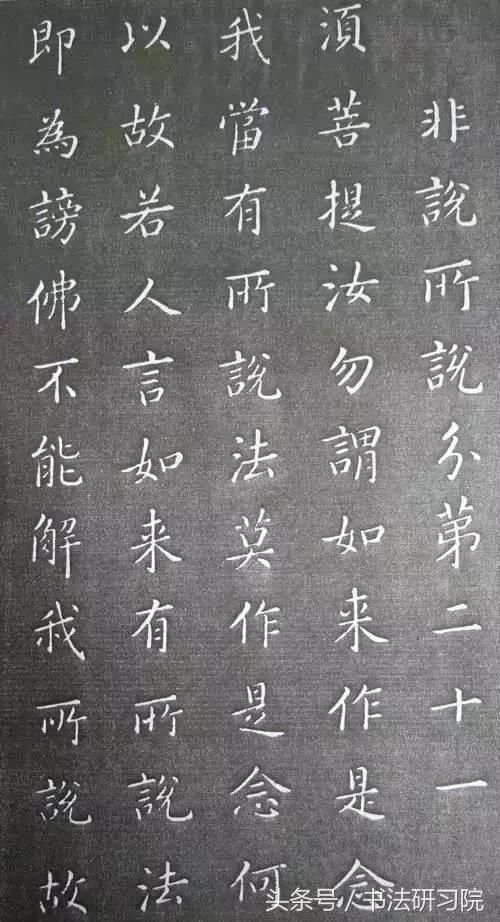 非說所說分第二十一
須菩提汝勿謂如来作是念
我當有所說法莫作是念何
以故若人言如来有所說法
即為謗佛不能解我所說故
头条号/书法研习院